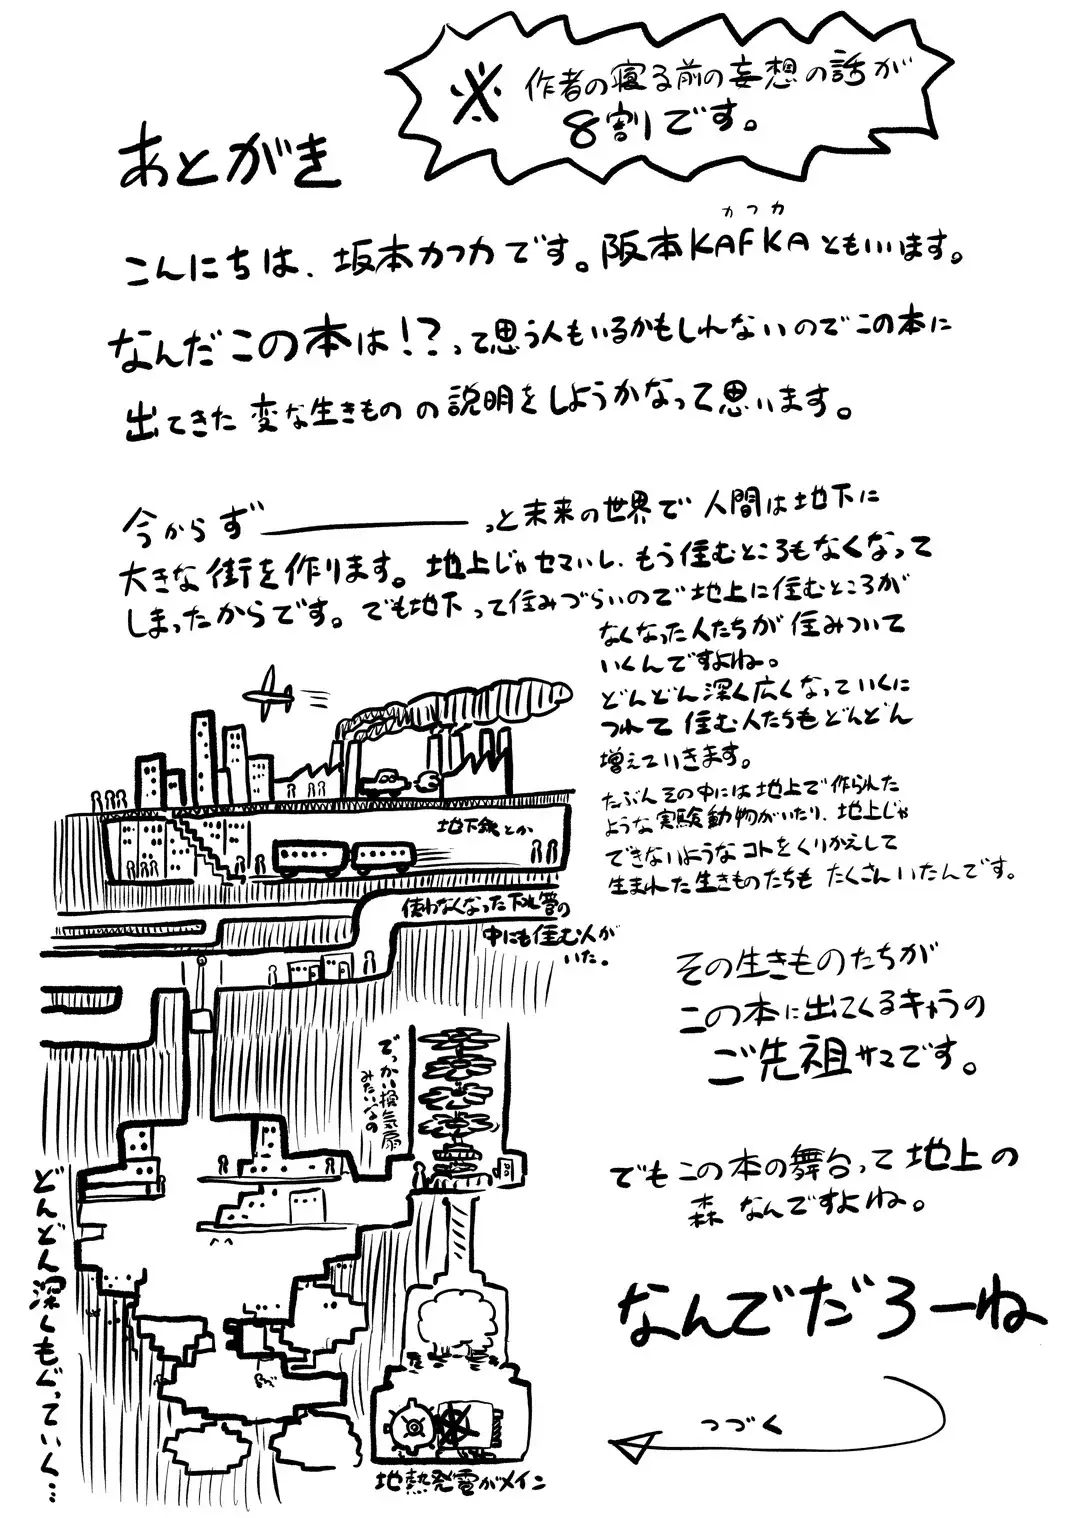 ※ 作者の寝る前の妄想の話が
8割です。
あとがき
こんにちは、坂本カフカです。阪本KAFKAともいいます。
カフカ
なんだこの本は!?って思う人もいるかもしれないのでこの本に
出てきた変な生きものの説明をしようかなって思います。
今からずーーーっと未来の世界で人間は地下に
大きな街を作ります。地上じゃセマいし、もう住むところもなくなって
しまったからです。でも地下って住みづらいので地上に住むところが
なくなった人たちが住みついて
いくんですよね。
どんどん深く広くなっていくに
つれて住む人たちもどんどん
増えていきます。
たぶんその中には地上で作られた
ような実験動物がいたり、地上じゃ
できないようなコトをくりかえして
生まれた生きものたちもたくさんいたんです。
地下鉄とか
使わなくなった下水管の
中にも住む人が
いた。
その生きものたちが
この本に出てくるキャラの
ご先祖サマです。
でっかい換気扇
みたいなの
でもこの本の舞台って地上の
森なんですよね。
どんどん深くもぐっていく…
なんでだろーね
つづく
地熱発電がメイン